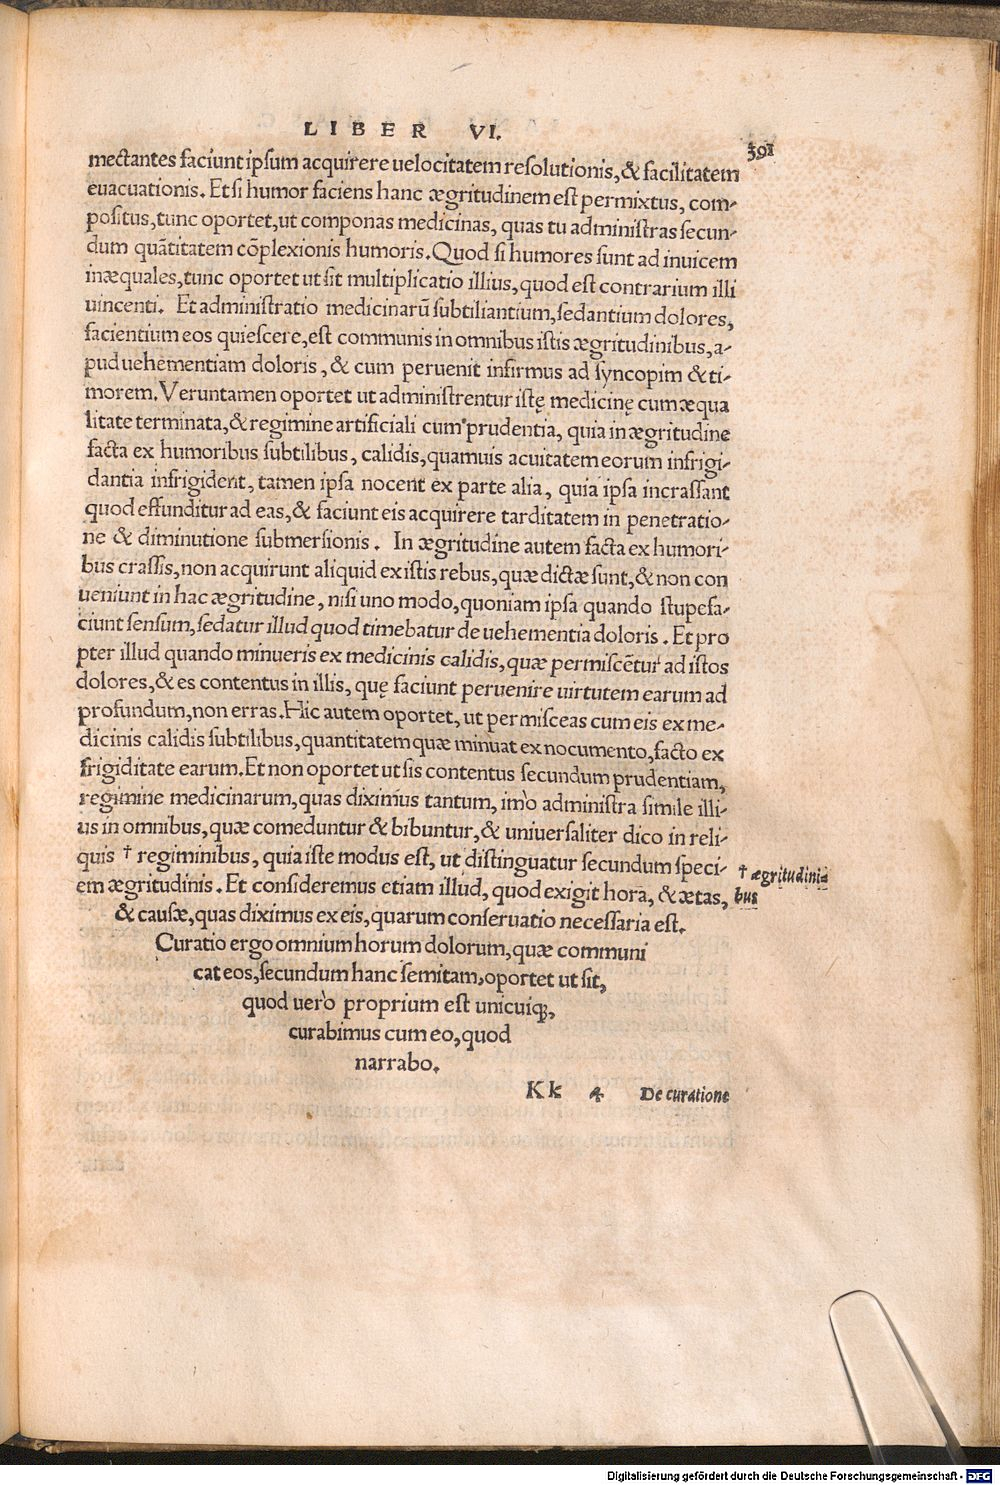 LIBER VI.
391
mectantes faciunt ipſum acquirere uelocitatem reſolutionis, & facilitatem
euacuationis. Et ſi humor faciens hanc ægritudinem eſt permixtus, com-
poſitus, tunc oportet, ut componas medicinas, quas tu adminiſtras ſecun-
dum quãtitatem cõplexionis humoris. Quod ſi humores ſunt ad inuicem
inæquales, tunc oportet ut ſit multiplicatio illius, quod eſt contrarium illi
uincenti. Et adminiſtratio medicinarũ ſubtiliantium, ſedantium dolores,
facientium eos quieſcere, eſt communis in omnibus iſtis ægritudinibus, a-
pud uehementiam doloris, & cum peruenit infirmus ad ſyncopim & ti-
morem. Veruntamen oportet ut adminiſtrentur iſtę medicinę cum æqua
litate terminata, & regimine artificiali cum prudentia, quia in ægritudine
facta ex humoribus ſubtilibus, calidis, quamuis acuitatem eorum infrigi-
dantia infrigident, tamen ipſa nocent ex parte alia, quia ipſa incraſſant
quod effunditur ad eas, & faciunt eis acquirere tarditatem in penetratio-
ne & diminutione ſubmerſionis. In ægritudine autem facta ex humori-
bus craſſis, non acquirunt aliquid ex iſtis rebus, quæ dictæ ſunt, & non con
ueniunt in hac ægritudine, niſi uno modo, quoniam ipſa quando ſtupefa-
ciunt ſenſum, ſedatur illud quod timebatur de uehementia doloris. Et pro
pter illud quando minueris ex medicinis calidis, quæ permiſcẽtur ad iſtos
dolores, & es contentus in illis, quę faciunt peruenire uirtutem earum ad
profundum, non erras. Hic autem oportet, ut permiſceas cum eis ex me-
dicinis calidis ſubtilibus, quantitatem quæ minuat ex nocumento, facto ex
frigiditate earum. Et non oportet ut ſis contentus ſecundum prudentiam,
regimine medicinarum, quas diximus tantum, imò adminiſtra ſimile illi-
us in omnibus, quæ comeduntur & bibuntur, & uniuerſaliter dico in reli-
quis † regiminibus, quia iſte modus eſt, ut diſtinguatur ſecundum ſpeci-
† ægritudini
em ægritudinis. Et conſideremus etiam illud, quod exigit hora, & ætas,
bus
& cauſæ, quas diximus ex eis, quarum conſeruatio neceſſaria eſt.
Curatio ergo omnium horum dolorum, quæ communi
cat eos, ſecundum hanc ſemitam, oportet ut ſit,
quod uerò proprium eſt unicuiq;,
curabimus cum eo, quod
narrabo.
Kk 4 De curatione
Digitalisierung gefördert durch die Deutsche Forschungsgemeinschaft - DFG